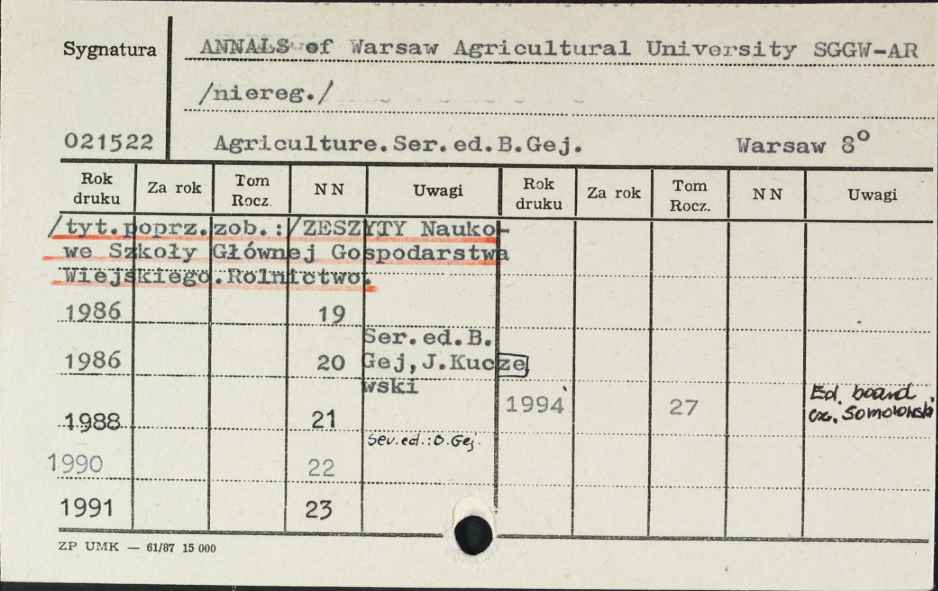 Sygnatura
ANNALS of Warsaw Agricultural University SGGW-AR
/niereg./
021522
Agriculture.Ser.ed.B.Gej. Warsaw 8°
Rok druku Za rok Tom Rocz. NN Uwagi Rok druku Za rok Tom Rocz. NN Uwagi
/tyt.poprz.zob.:/ZESZYTY Nauko-
we Szkoły Głównej Gospodarstwa
Wiejskiego.Rolnictwo.
1986 19
Ser.ed.B.
1986 20 Gej,J.Kucze
wski
1994 27 Ed. board
cz. Somorowski
1988 21
Ser.ed.:B.Gej.
1990 22
1991 23
ZP UMK — 61/87 15 000